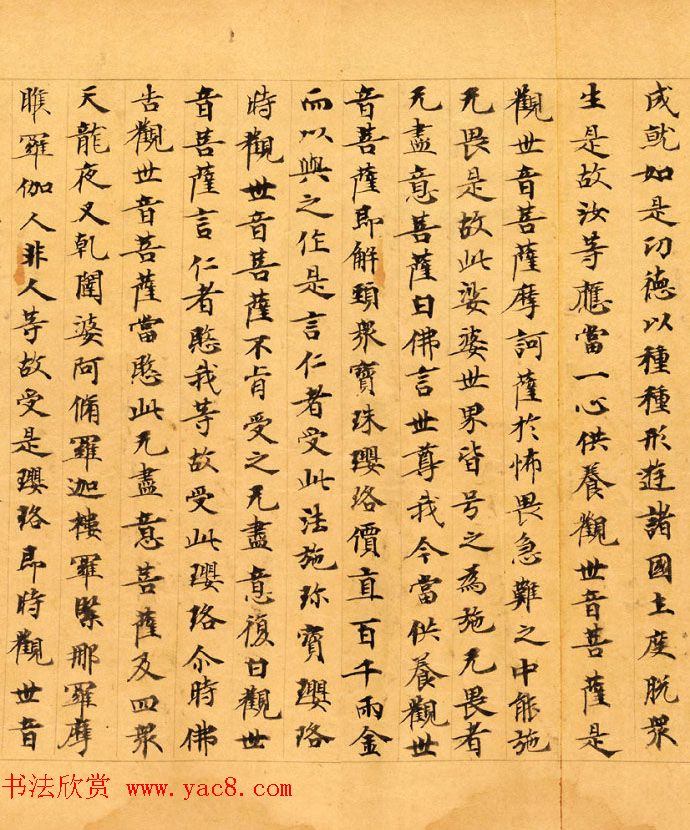 成就如是功德以種種形遊諸國土度脫衆
生是故汝等應當一心供養觀世音菩薩是
觀世音菩薩摩訶薩於怖畏急難之中能施
无畏是故此娑婆世界皆号之為施无畏者
无盡意菩薩白佛言世尊我今當供養觀世
音菩薩即解頸衆寶珠瓔珞價直百千兩金
而以與之作是言仁者受此法施珎寶瓔珞
時觀世音菩薩不肯受之无盡意復白觀世
音菩薩言仁者愍我等故受此瓔珞尒時佛
告觀世音菩薩當愍此无盡意菩薩及四衆
天龍夜叉乹闥婆阿脩羅迦樓羅緊那羅摩
睺羅伽人非人等故受是瓔珞即時觀世音
书法欣赏 www.yac8.com